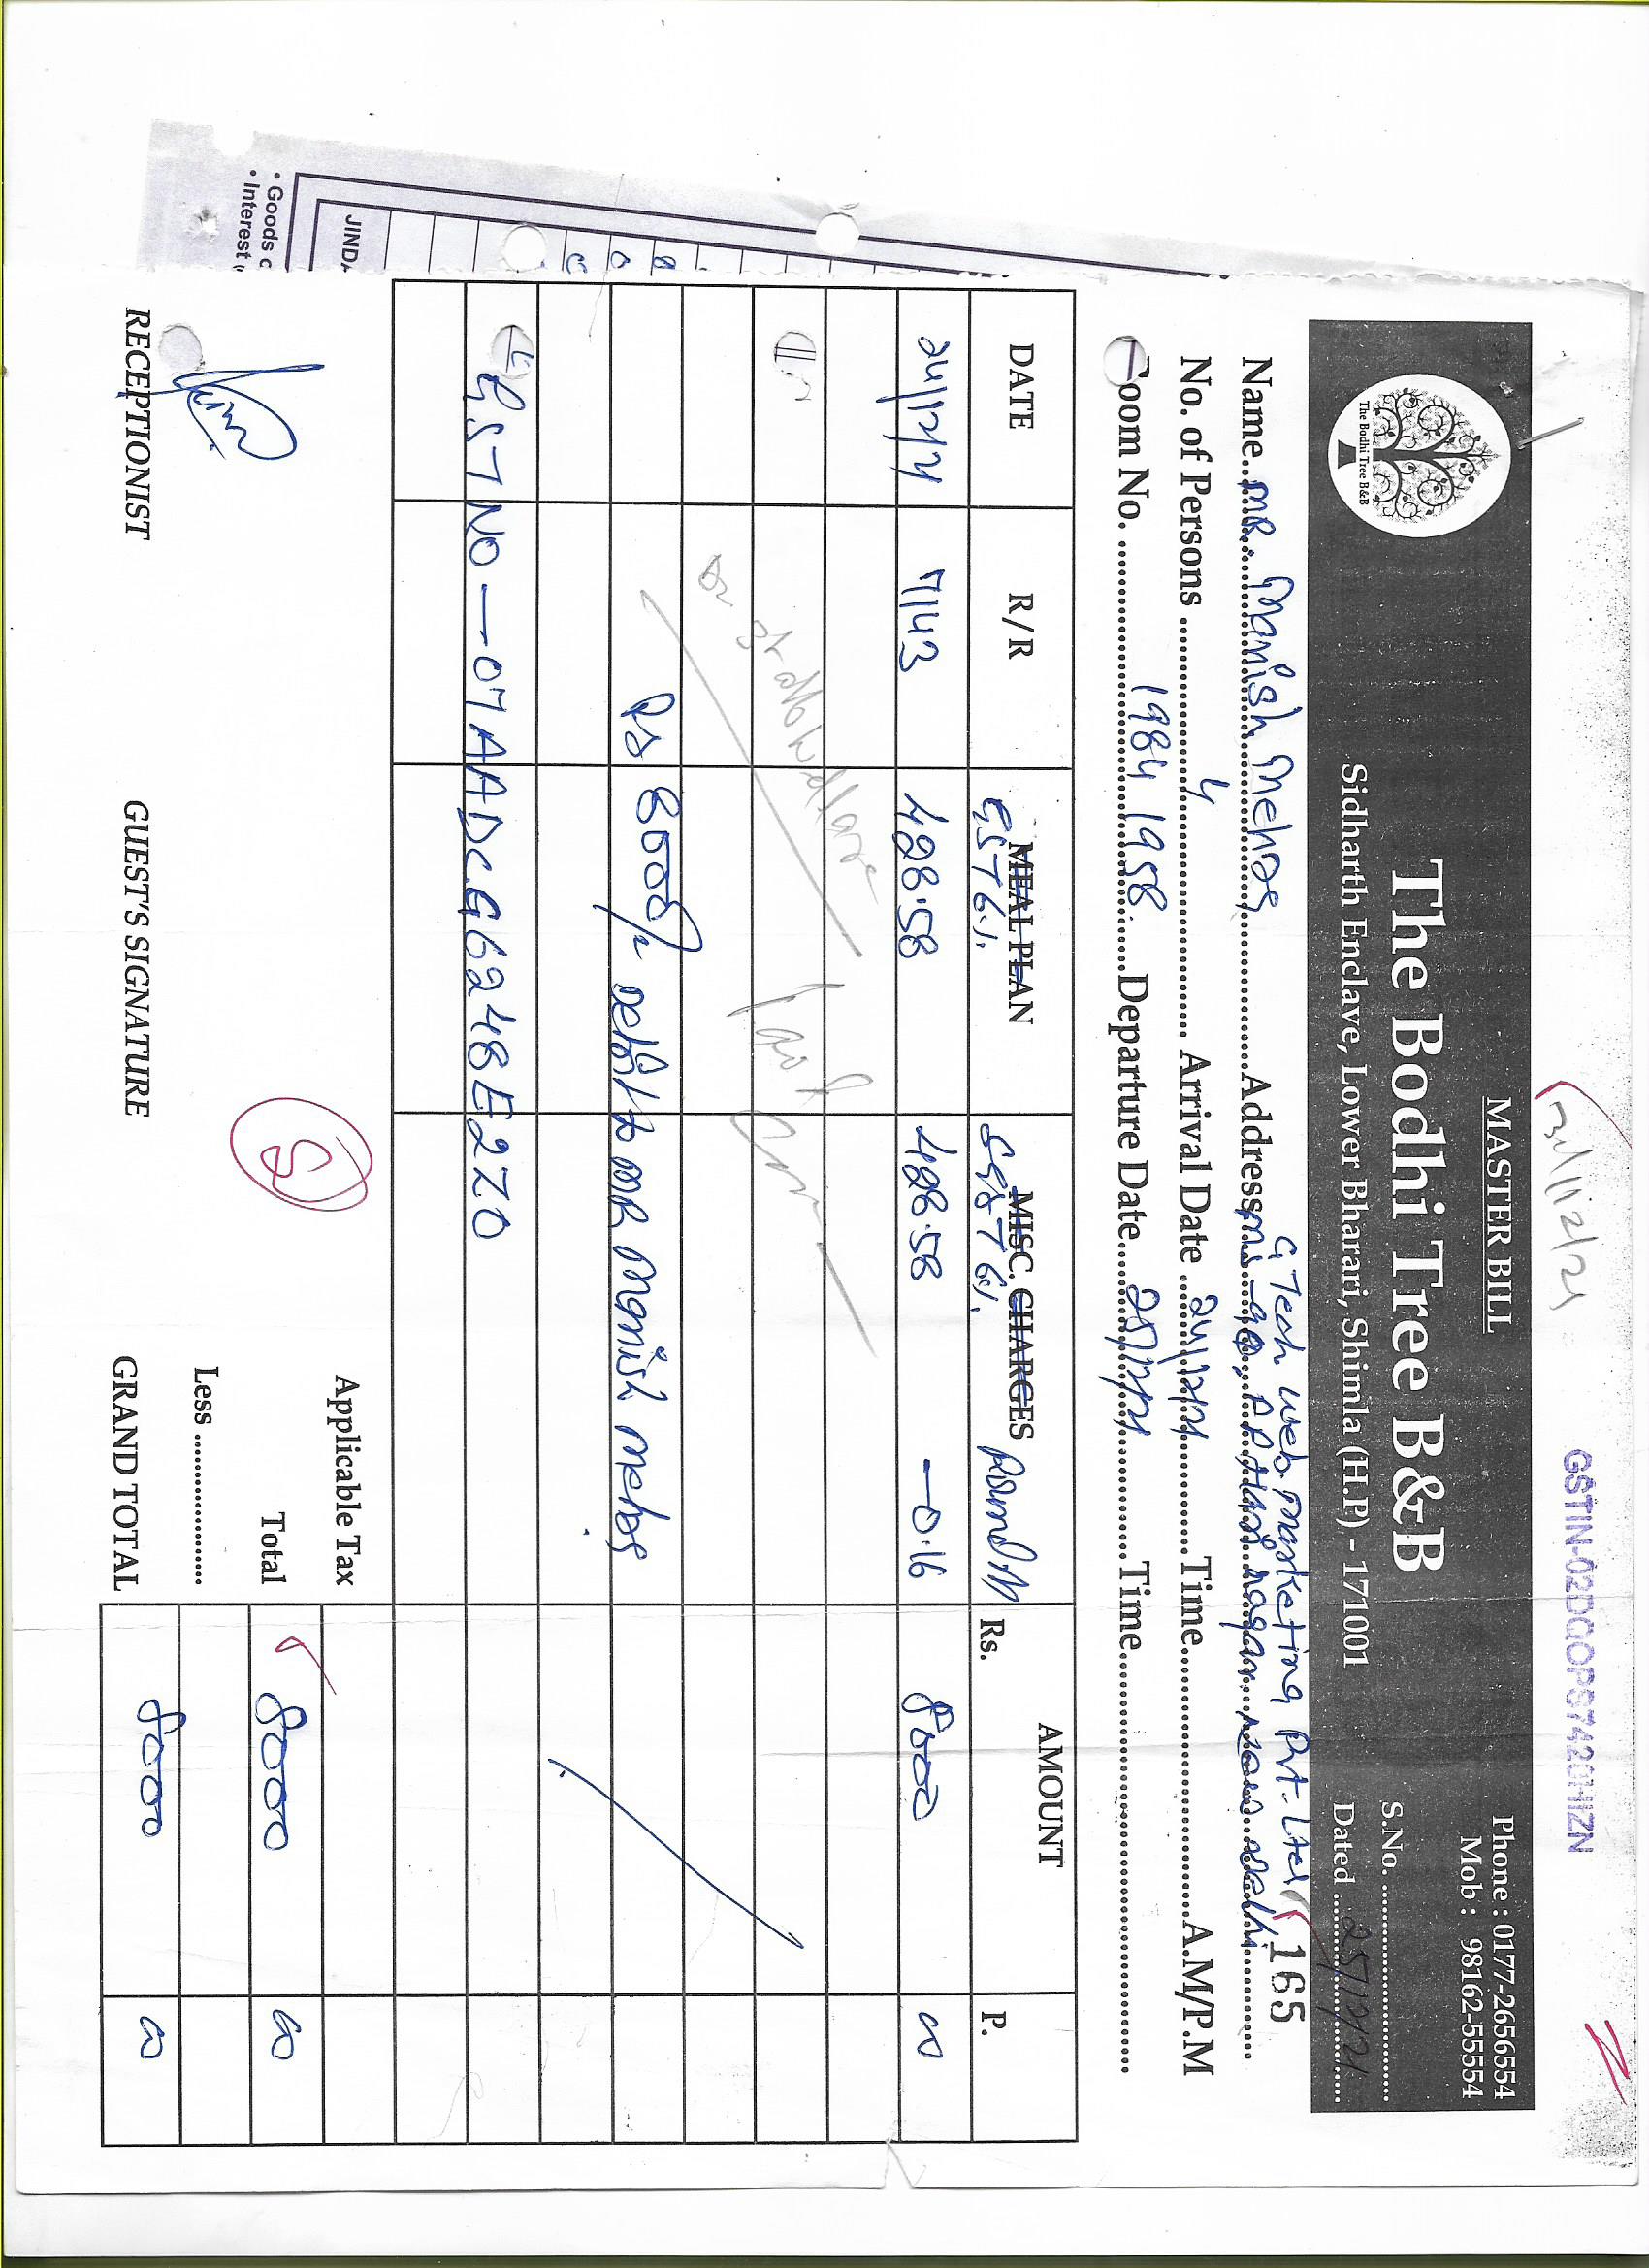 GSTIN-02DQOPS7420H1ZN
MASTER BILL
Phone : 0177-2656554
Mob : 98162-55554
The Bodhi Tree B&B
The Bodhi Tree B&B
S.No.
Sidharth Enclave, Lower Bharari, Shimla (H.P.) - 171001
Dated 25/12/21
165
G Tech Web Marketing Pvt. Ltd
Name MR. Manish Mehra Address Nagar New Delhi
No. of Persons 4 Arrival Date 24/12/21 Time A.M/P.M
Room No. 1984 1958 Departure Date 25/12/21 Time
DATE R/R MEAL PLAN MISC. CHARGES AMOUNT
GST 6% SGST 6% Round off Rs. P.
24/12/21 7143 428.58 428.58 -0.16 8000 00
Rs 8000/- debit to MR Manish Mehra
GST NO - 07AADCG6248E2Z0
Applicable Tax
Total 8000 00
Less
GRAND TOTAL 8000 00
RECEPTIONIST GUEST'S SIGNATURE
JINDA
• Goods c
• Interest